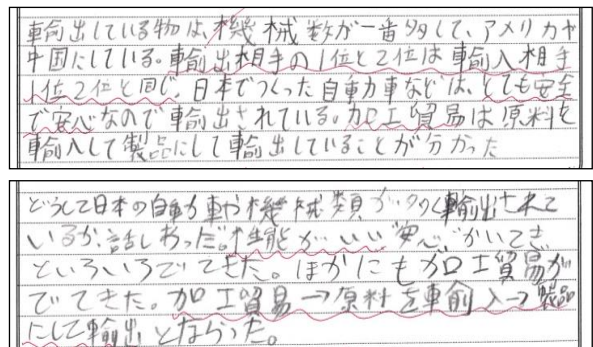 輸出している物は、機械数が一番多して、アメリカや
中国にしている。輸出相手の1位と2位は輸入相手
1位2位と同じ、日本でつくった自動力車などは、とても安全
で安心なので輸出されている。加工貿易は原料を
輸入して製品にして輸出していることが分かった
どうして日本の自動車や機械類が多く輸出されて
いるか、話しあった。"性能がいい""安心"がいてき
といろいろでてきた。ほかにも加工貿易が
でてきた。加工貿易→原料を輸入→製品
にして輸出とならった。